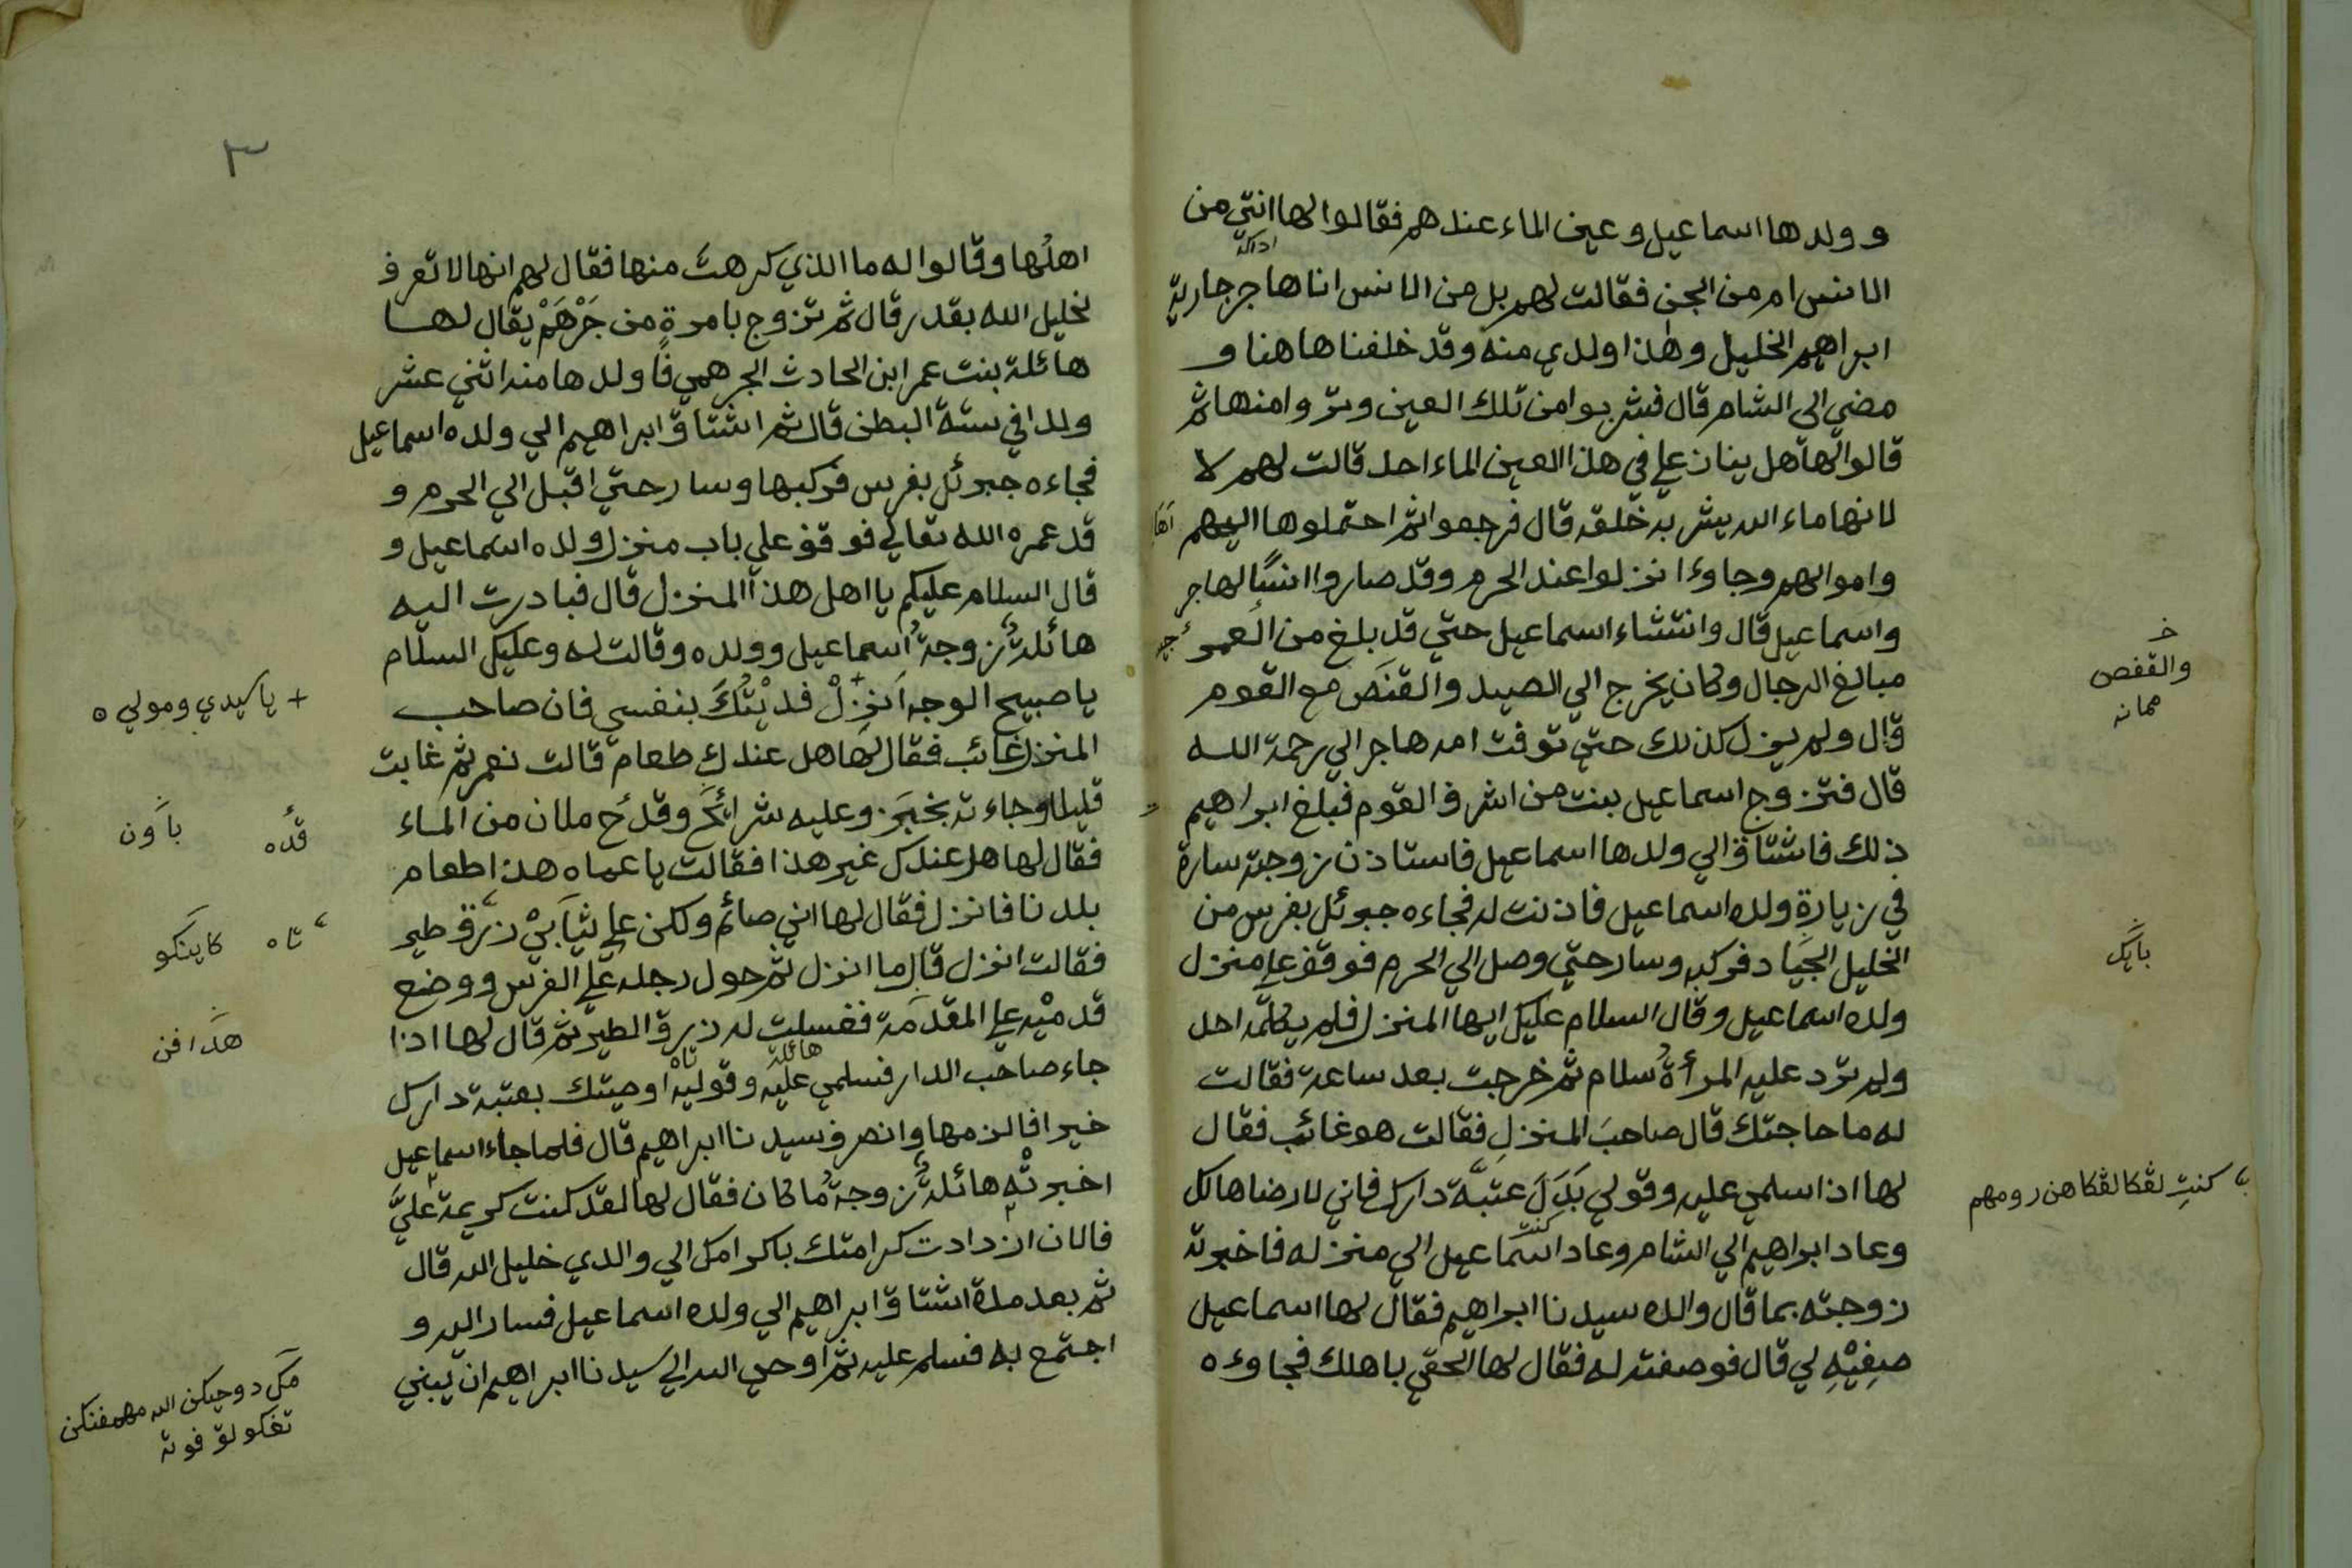 وولدها اسماعيل وعين الماء عندهم فقالوا لها انتي من
الانس ام من الجن فقالت لهم بل من الانس انا هاجر جارية
ابراهيم الخليل وهذا ولدي منه وقد خلفنا هاهنا و
مضي الى الشام قال فشربوا من تلك العين وتزوا منها ثم
قالوا لها هل ينازعلي في هذا العين الماء احد قالت لهم لا
لانها ماء الله يشربه خلقه قال فرجعوا ثم احتملوها اليهم
واموالهم وجاوءا نزلوا عند الحرم وقد صاروا انسًا لهاجر
واسماعيل قال وانتشاء اسماعيل حتي قد بلغ من العمر
مبالغ الرجال وكان يخرج الي الصيد والقنص مع القوم
قال ولم يزل كذلك حتي توفت امه هاجر الي رحمة الله
قال فتزوج اسماعيل ببنت من اشرف القوم فبلغ ابراهيم
ذلك فاشتاق الي ولدها اسماعيل فاستاذن زوجته سارة
في زيارة ولده اسماعيل فاذنت له فجاءه جبرئل بفرس من
الخليل الجياد فركبه وسار حتي وصل الي الحرم فوقف علي منزل
ولده اسماعيل وقال السلام عليك ايها المنزل فلم يكلمه احد
ولم ترد عليه المرأةُ سلام ثم خرجت بعد ساعة فقالت
له ما حاجتك قال صاحبَ المنزلِ فقالت هو غائب فقال
لها اذا سلمي عليه وقولي بَدَلَ عَتَبَة دارك فاني لا رضاها لك
وعاد ابراهيم الي الشام وعاد اسماعيل الي منزله فاخبرته
زوجته بما قال والده سيدنا ابراهيم فقال لها اسماعيل
صِفِيْهِ لي قال فوصفته له فقال لها الحقي باهلك فجاوءه
خـ
والقفص
ممانه
بأيك
كنتِ لڤكا لڤكاهن رومهم
٣
اهلُها وقالوا له ما الذي كرهتَ منها فقال لهم انها لا تعرف
لخليل الله بقدر قال ثم تزوج بامرةٍ من جَرْهَمْ يقال لها
هائلة بنت عمر ابن الحادث الجرهمي فاولدها منه اثني عشر
ولدا في ستة البطن قال ثم اشتاق ابراهيم الي ولده اسماعيل
فجاءه جبرئل بفرس فركبها وسار حتي اقبل الي الحرم و
قد عمره الله تعالي فوقف علي باب منزل ولده اسماعيل و
قال السلام عليكم يا اهل هذا المنزل قال فبادرت اليه
هائلةُ زوجةُ اسماعيل وولده وقالت له وعليك السلام
يا صبيح الوجه اَنزِلْ فديْتُكَ بنفسي فان صاحب
المنزل غائب فقال لها هل عندك طعام قالت نعم ثم غابت
قليلا وجاءته بخبز وعليه شرائح وقدح ملان من الماء
فقال لها هل عندك غير هذا فقالت يا عماه هذا طعام
بلدنا فانزل فقال لها اني صائم ولكن علي ثيابيْ زرق طير
فقالت انزل قال ما انزل ثم حول رجله علي الفرس ووضع
قدميْه علي المقدمة فغسلت له زرق الطير ثم قال لها اذا
هائلة
جاء صاحب الدار فسلمي عليه وقوليه اوصيتك بعتبة دارك
خيرا فالزمها وانصرف سيدنا ابراهيم قال فلما جاء اسماعيل
اخبرتْه هائلةُ زوجةُ ما كان فقال لها لقد كنت كريمة عليّ
فالان ازدادت كرامتك باكرامك الي والدي خليل الله قال
ثم بعد مدة اشتاق ابراهيم الي ولده اسماعيل فسار اليه و
اجتمع به فسلم عليه ثم اوحي الله الي سيدنا ابراهيم ان يبني
+ يا سيدي ومولي ه
قدّه باَون
تاه كاينكو
هدافن
مك دوحيكن الله مهمفنكن